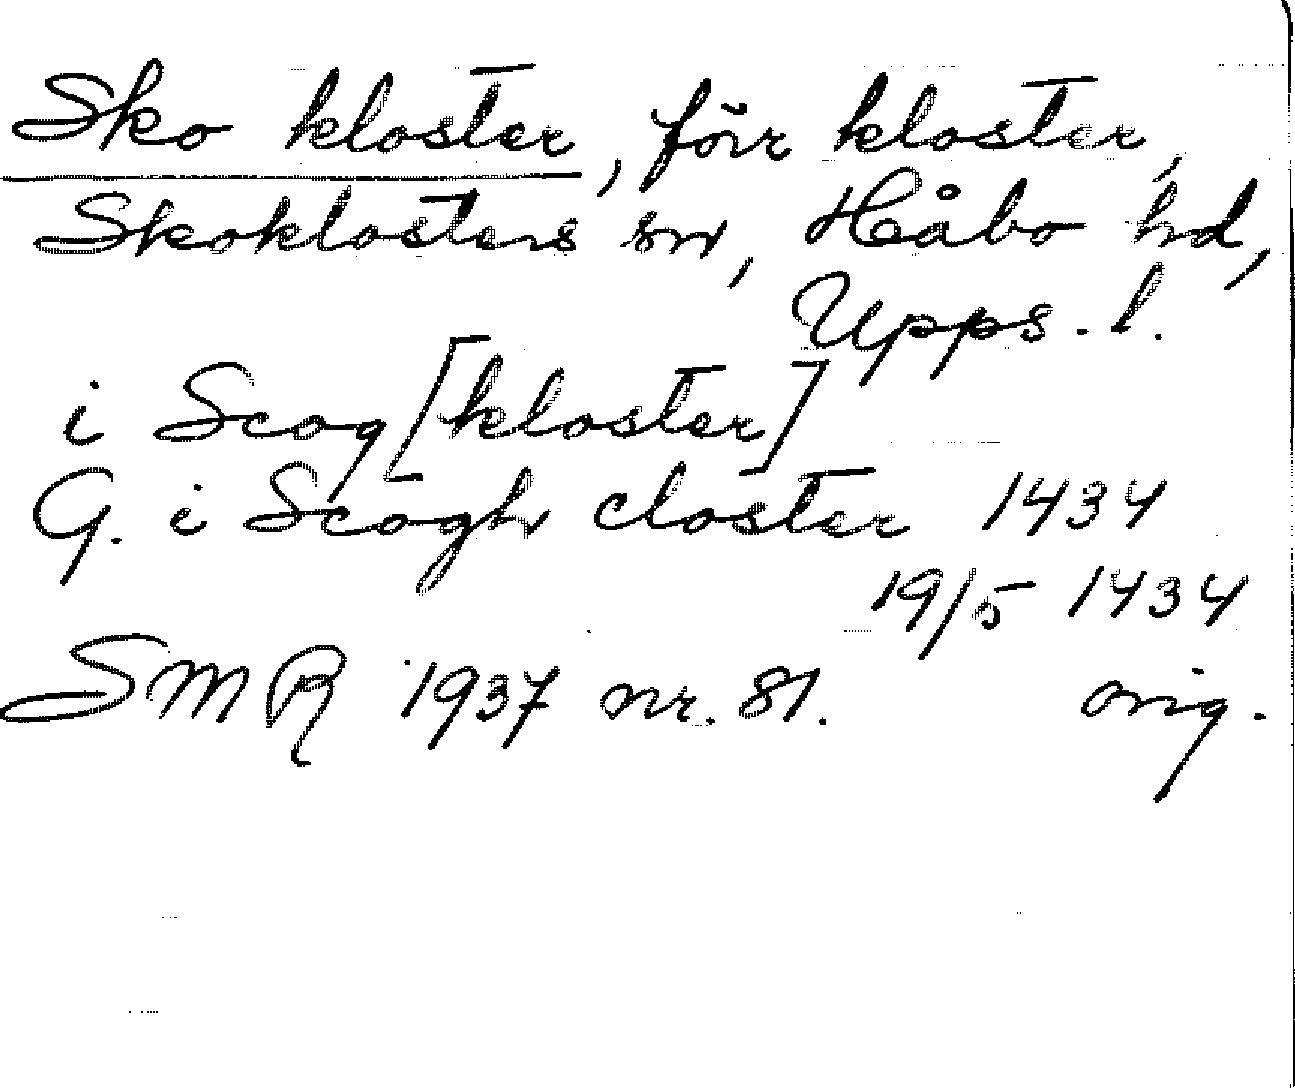 Sko kloster, förr kloster,
Skoklosters sn, Håbo hd,
Upps. l.
i Scog [kloster]
G. i Scogh closter 1434
19/5 1434
SMR 1937 nr. 81. orig.